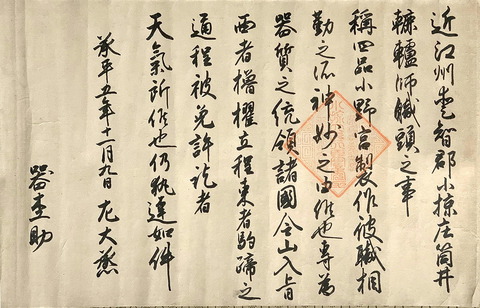 近江州愛智郡小椋庄筒井
轆轤師職頭之事
稱四品小野宮製作彼職相
勤之所神妙之由候也専為
器質之統領諸國令山入
西者櫓櫂立程東者駒蹄之
通程被免許訖者
天氣所候也仍執達如件
承平五年十一月九日 左大丞
器杢助